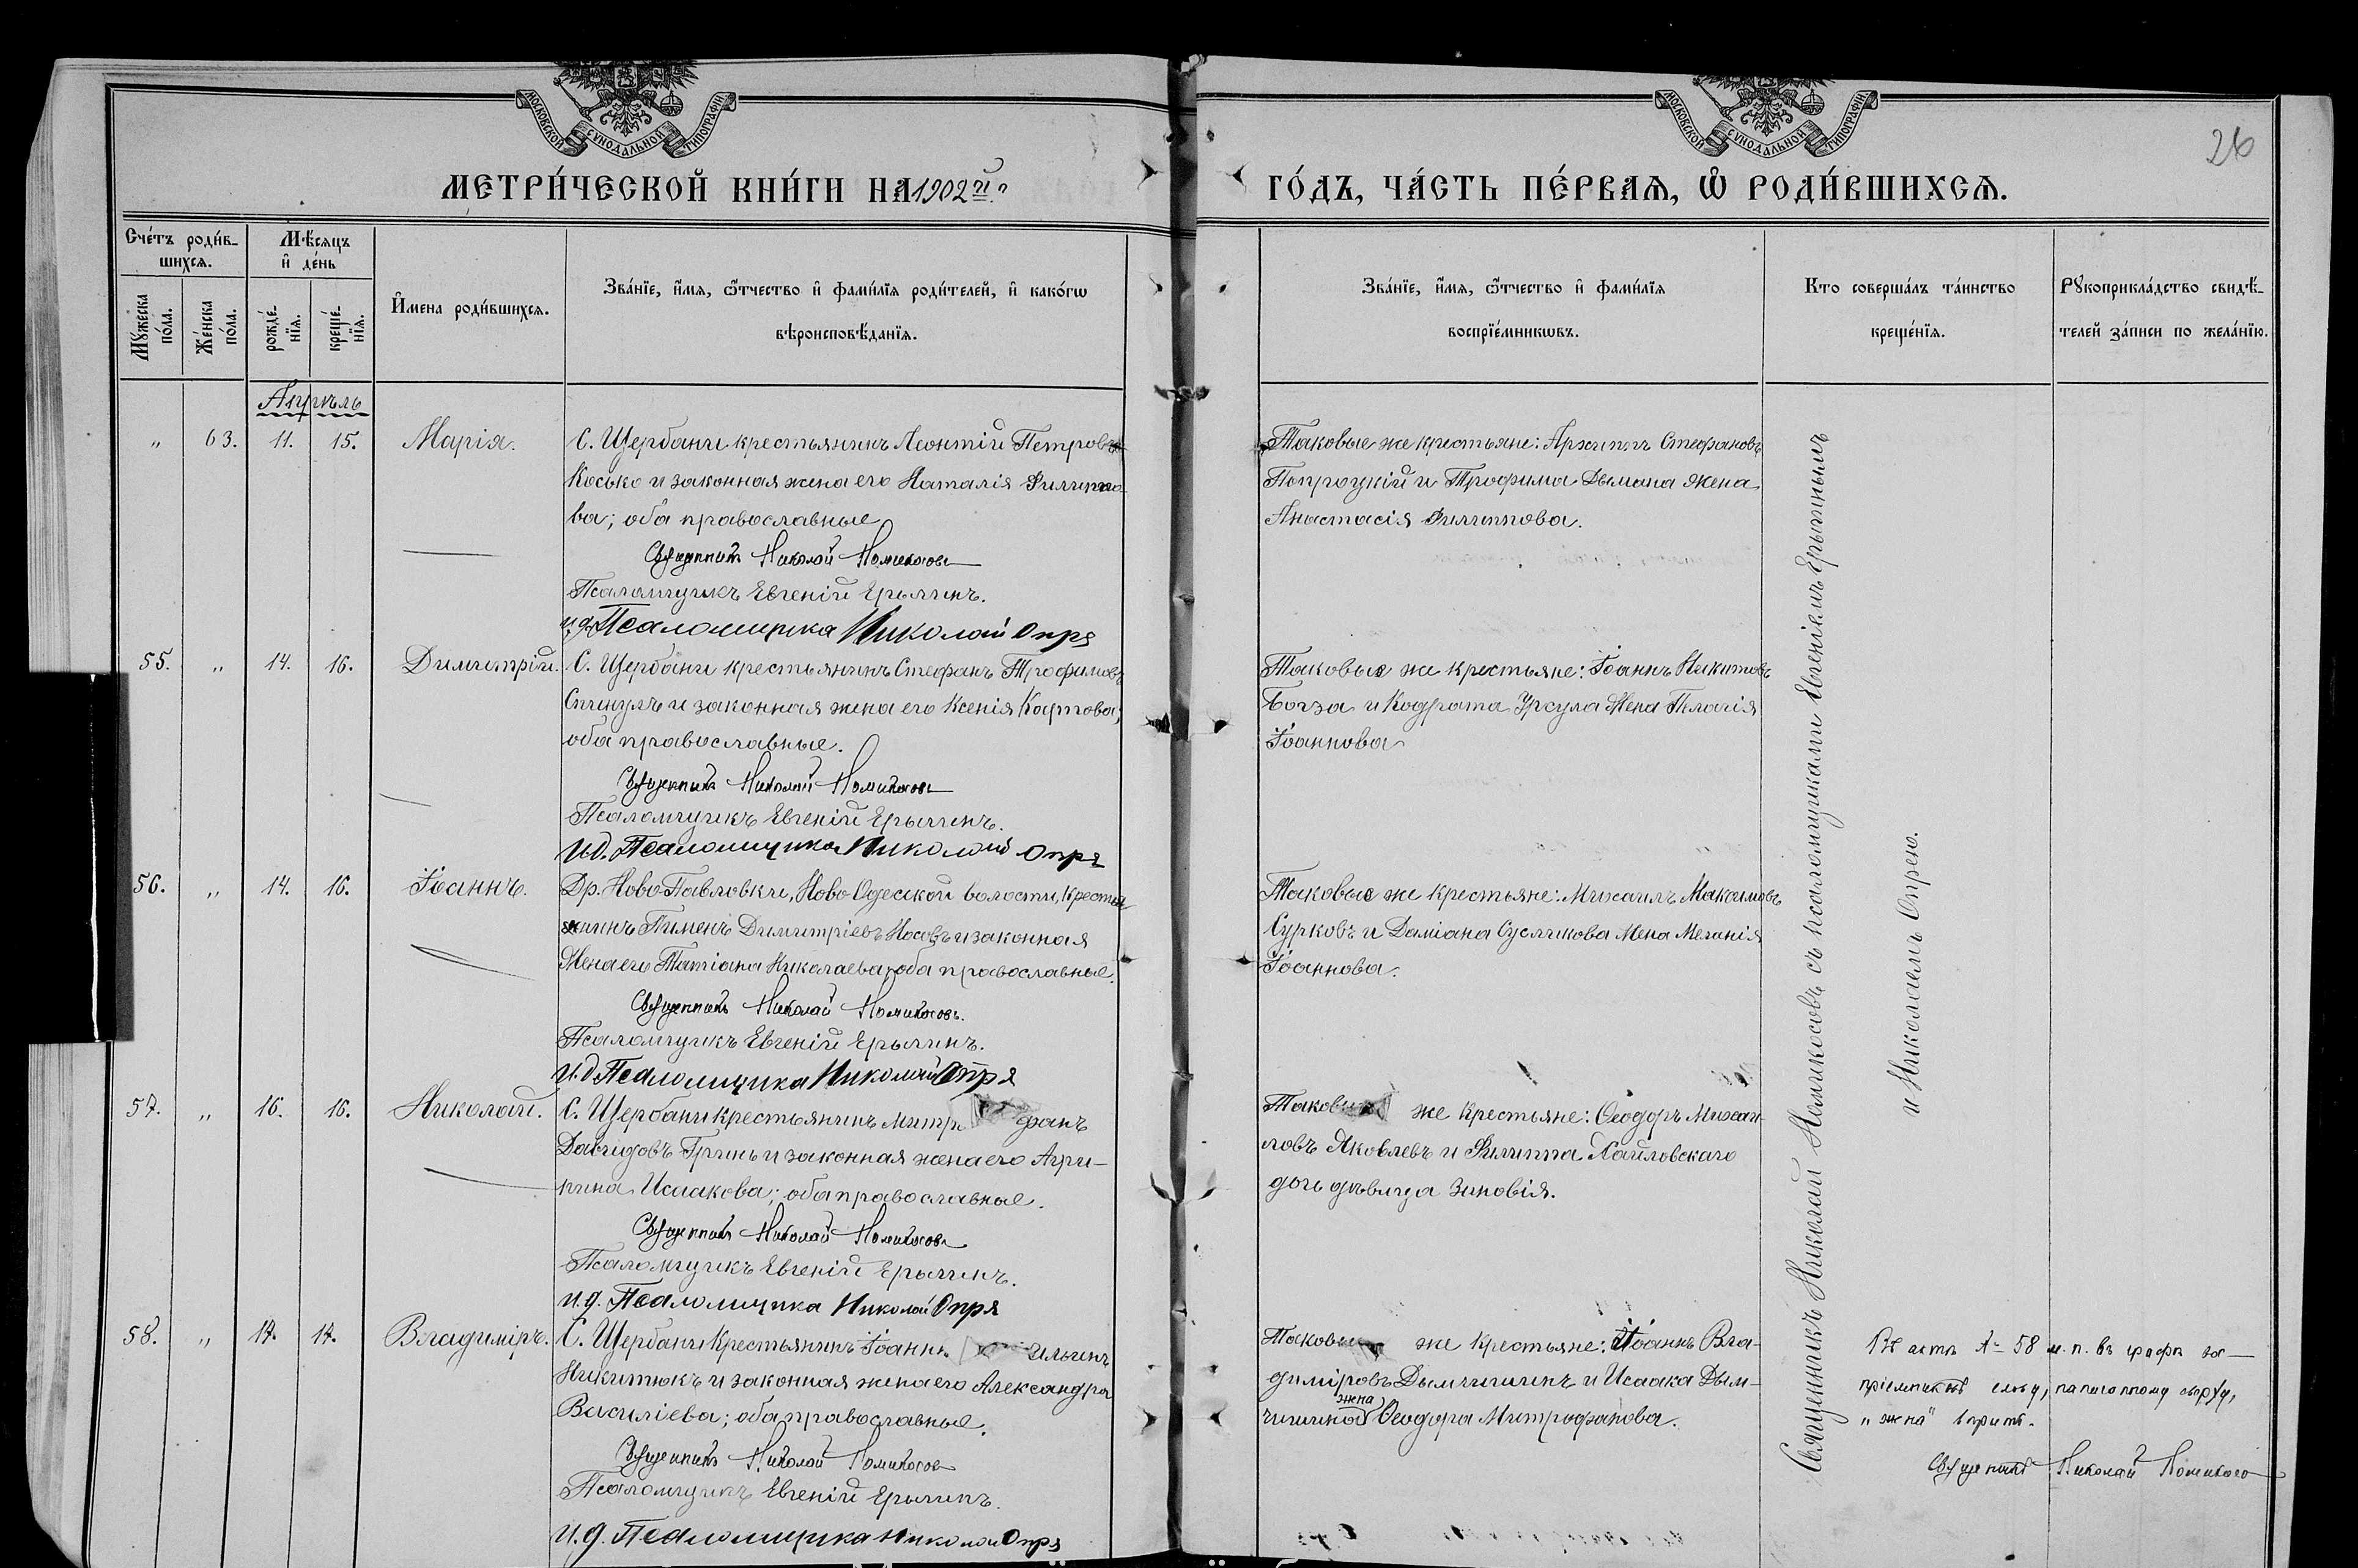 МОСКОВСКОЙ СѴНОДАЛЬНОЙ ТИПОГРАФІИ
МОСКОВСКОЙ СѴНОДАЛЬНОЙ ТИПОГРАФІИ
26
МЕТРИ́ЧЕСКОЙ КНИ́ГИ НА 1902 й
ГО́ДЪ, ЧА́СТЬ ПЕ́РВАЯ, Ѡ РОДИ́ВШИХСЯ.
Сче́тъ роди́в-
шихся.
Мѣ́сяцъ
и де́нь
Мꙋ́жеска по́ла.
Же́нска по́ла.
рожде́нїя.
креще́нїя.
И́мена роди́вшихся.
Зва́нїе, и́мя, ѻ́тчество и фами́лїя роди́телей, и како́гѡ
вѣроисповѣ́данїя.
Зва́нїе, и́мя, ѻ́тчество и фами́лїя
воспрїе́мникѡвъ.
Кто соверша́лъ та́инство
креще́нїя.
Рꙋкоприкла́дство свидѣ́-
телей за́писи по жела́нїю.
Апрѣль
„ 63. 11. 15. Марія. С. Щербани крестьянинъ Леонтій Петровъ
Косько и законная жена его Наталія Филиппо-
ва; оба православные
Священникъ Николай Номикосовъ
Псаломщикъ Евгеній Ерыгинъ.
и.д. Псаломщика Николай Опря
Таковые же крестьяне: Архипъ Стефановъ
Попроцкій и Трофима Дымана жена
Анастасія Филиппова.
55. „ 14. 16. Димитрій. С. Щербани крестьянинъ Стефанъ Трофимовъ
Спинулъ и законная жена его Ксенія Карпова;
оба православные.
Священникъ Николай Номикосовъ
Псаломщикъ Евгеній Ерыгинъ.
И.д. Псаломщика Николай Опря
Таковые же крестьяне: Іоаннъ Никитовъ
Богза и Кодрата Урсула жена Пелагія
Іоаннова
56. „ 14. 16. Іоаннъ. Др. Ново-Павловки, Ново-Одесской волости, кресть
янинъ Пименъ Димитріевъ Носовъ и законная
жена его Татіана Николаева; оба православные.
Священникъ Николай Номикосовъ.
Псаломщикъ Евгеній Ерыгинъ.
И.д. Псаломщика Николай Опря
Таковые же крестьяне: Михаилъ Максимовъ
Сурковъ и Даміана Сусликова жена Меланія
Іоаннова.
57. „ 16. 16. Николай. С. Щербани крестьянинъ Митр фанъ
Давидовъ Гринь и законная жена его Агри-
пина Исаакова; оба православные.
Священникъ Николай Номикосовъ
Псаломщикъ Евгеній Ерыгинъ.
И.д. Псаломщика Николай Опря
Таковые же крестьяне: Ѳеодоръ Михаи-
ловъ Яковлевъ и Филиппа Хайловскаго
дочь дѣвица Зиновія.
58. „ 17. 17. Владиміръ. С. Щербани крестьянинъ Іоаннъ Ильинъ
Никитюкъ и законная жена его Александра
Василіева; оба православные.
Священникъ Николай Номикосовъ
Псаломщикъ Евгеній Ерыгинъ.
И.д. Псаломщика Николай Опря
Таковые же крестьяне: Іоаннъ Вла-
диміровъ Дымчишинъ и Исаака Дым-
жена
чишина Ѳеодора Митрофанова.
Священникъ Николай Номикосовъ съ псаломщиками Евгеніемъ Ерыгинымъ
и Николаемъ Опрею.
Въ актѣ № 58 м. п. въ графѣ вос-
пріемниковъ слову, написанному сверху,
„жена" вѣрить.
Священникъ Николай Номикосо